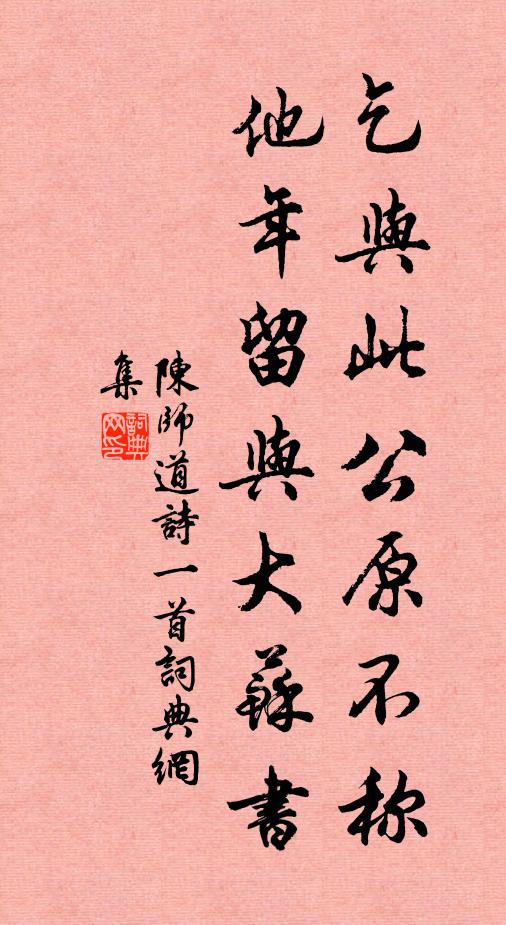 乞與此公原不称
他年留與大蘇書
陳師道詩一首詞典網
集
詞典网印